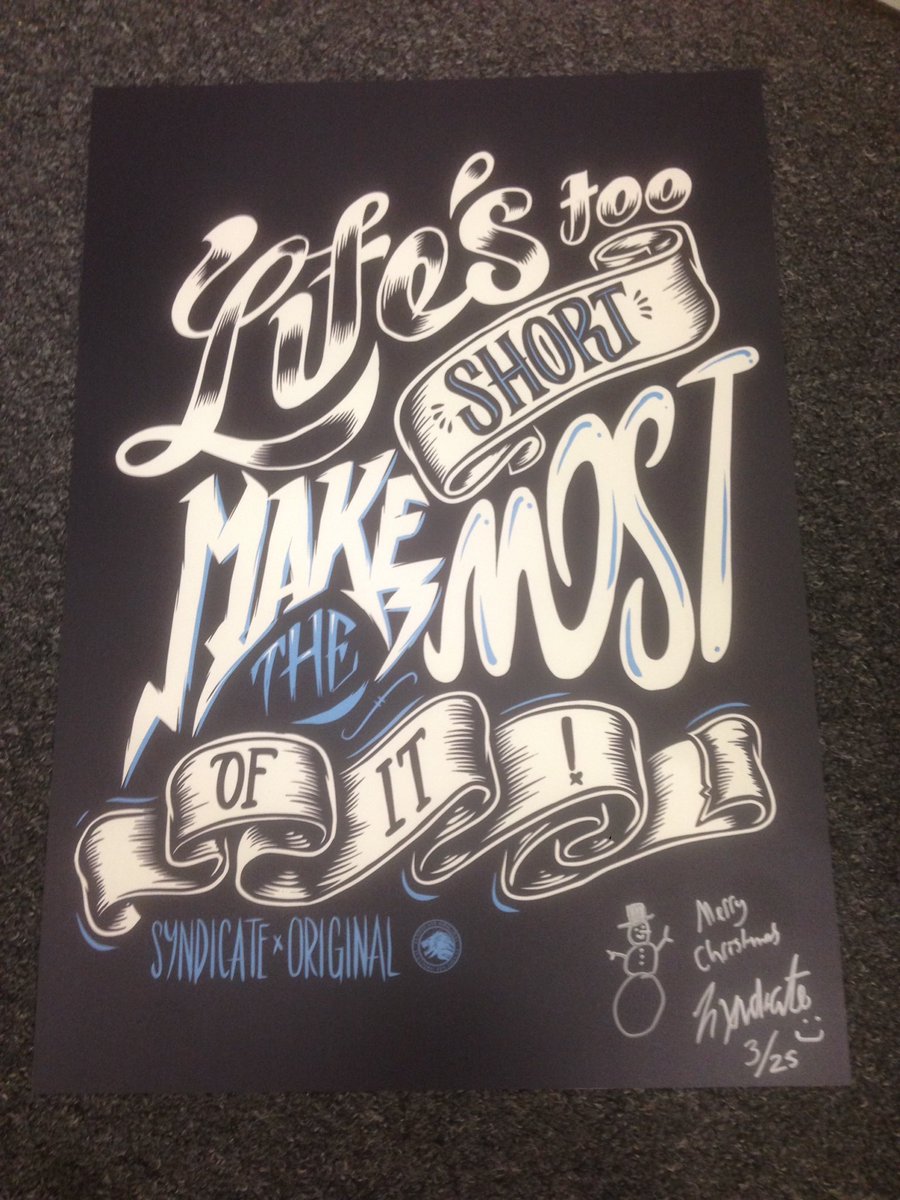 Life's too
SHORT
MAKE
THE
MOST
OF IT!
SYNDICATE x ORIGINAL
Merry
Christmas
Syndicate :)
3/25